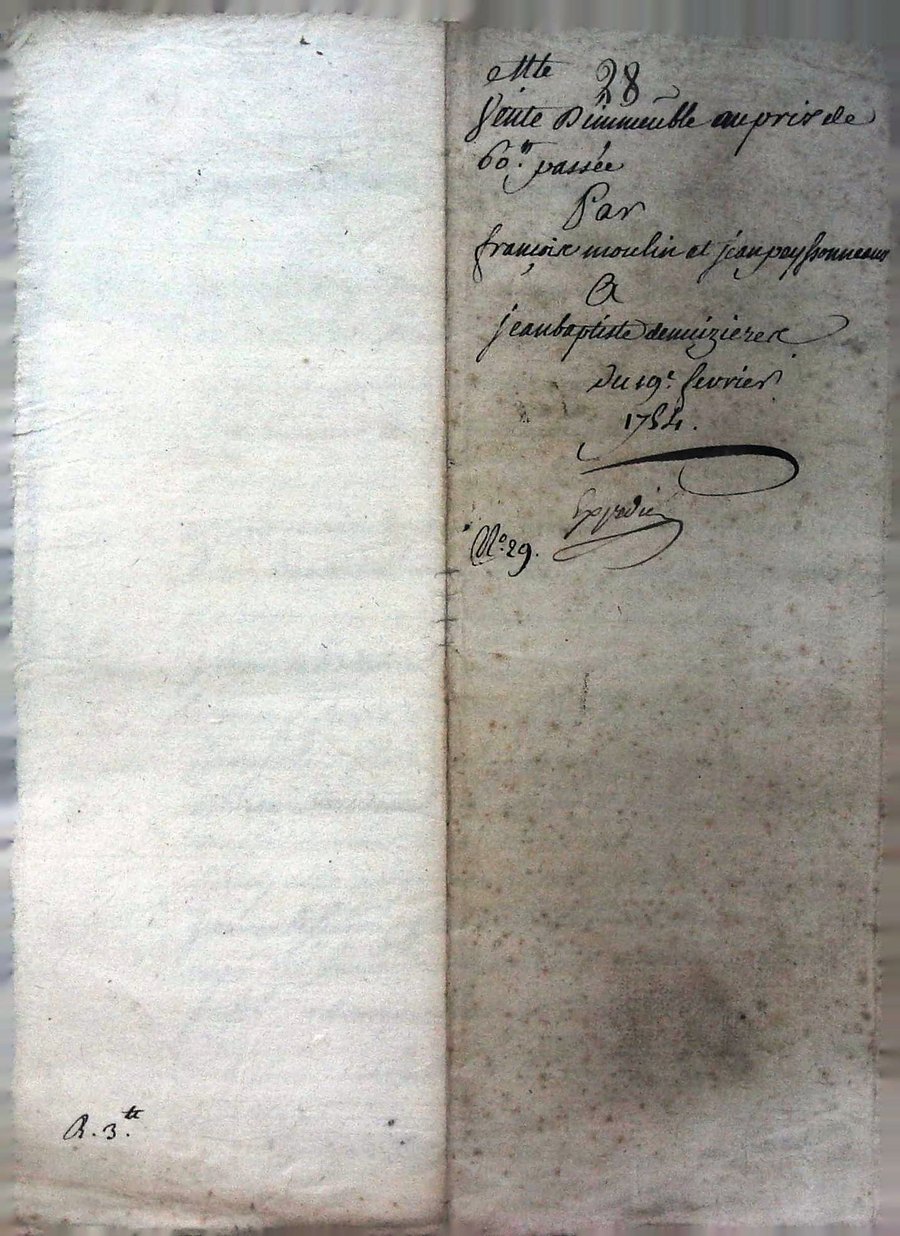 28
Vente Dimmeuble au prix de
60.tt passée
Par
françoix moulin et jean peyssonneaux
A
jean baptiste demizierex
Du 19e. fevrier
1754.
Expedié
No. 29.
R. 3.tt